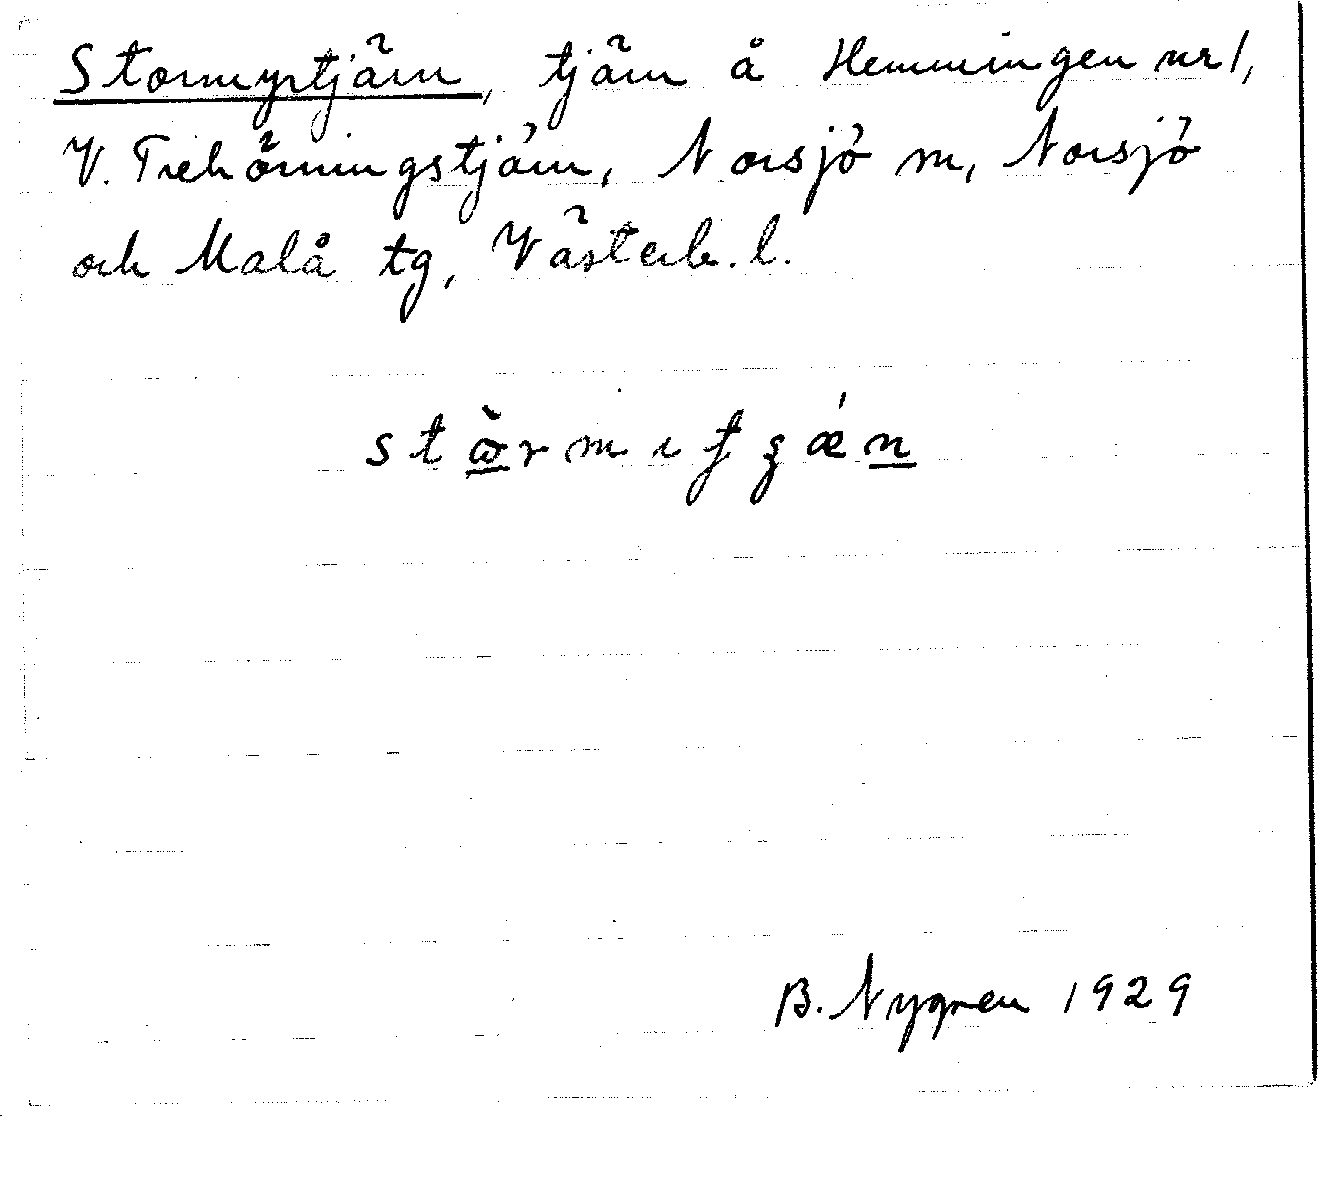 Stormyrtjärn, tjärn å Hemmingen nr 1,
V. Trehörningstjärn, Norsjö sn, Norsjö
och Malå tg, Västerb. l.
B. Nygren 1929